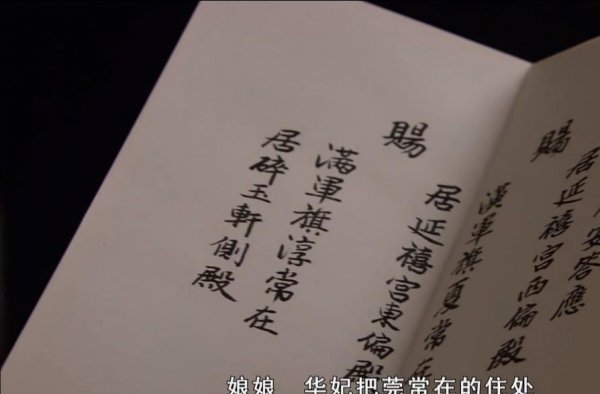 安答應
居延禧宮西偏殿
賜
漢軍旗夏常在
居延禧宮東偏殿
賜
滿軍旗淳常在
居碎玉軒側殿
娘娘 华妃把莞常在的住处